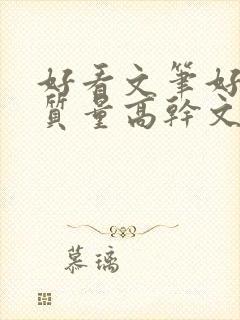 好看文筆好
質量高幹文
慕璃